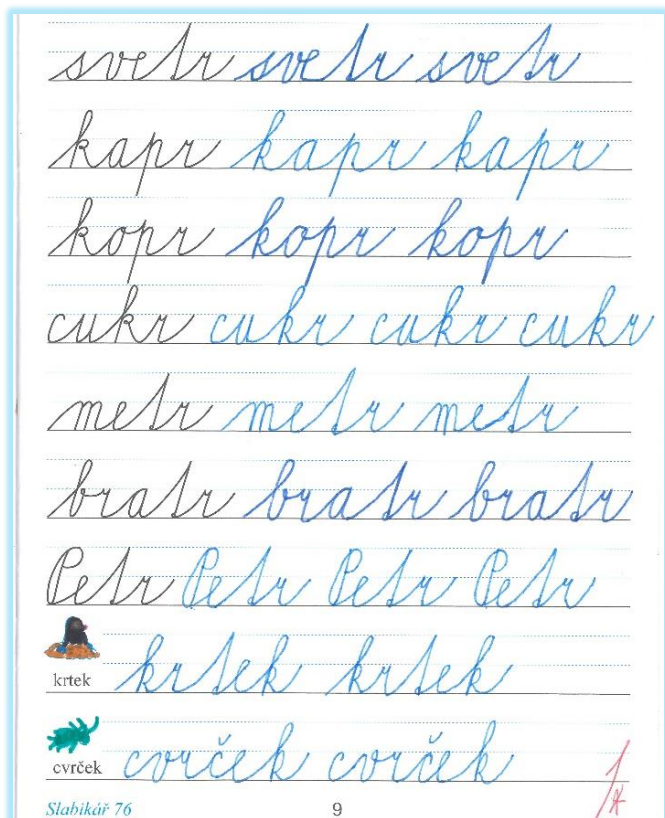 svetr svetr svetr
kapr kapr kapr
kopr kopr kopr
cukr cukr cukr cukr
metr metr metr
bratr bratr bratr
Petr Petr Petr Petr
krtek krtek krtek
cvrček cvrček cvrček
Slabikář 76 9